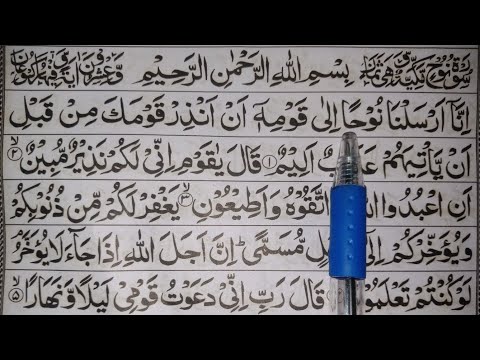 سُوْرَةُ نُوْحٍ مَكِّيَّةٌ بِسْمِ اللهِ الرَّحْمٰنِ الرَّحِيْمِ
اِنَّاۤ اَرْسَلْنَا نُوْحًا اِلٰى قَوْمِهٖۤ اَنْ اَنْذِرْ قَوْمَكَ مِنْ قَبْلِ
اَنْ يَّاْتِيَهُمْ عَذَابٌ اَلِيْمٌ ۝۱ قَالَ يٰقَوْمِ اِنِّىْ لَكُمْ نَذِيْرٌ مُّبِيْنٌ ۝۲
اَنِ اعْبُدُوا اتَّقُوْهُ وَاَطِيْعُوْنِ ۝۳ يَغْفِرْ لَكُمْ مِّنْ ذُنُوْبِكُمْ
وَيُؤَخِّرْكُمْ اِلٰۤى مُّسَمًّى ؕ اِنَّ اَجَلَ اللهِ اِذَا جَآءَ لَا يُؤَخَّرُ ۘ
لَوْ كُنْتُمْ تَعْلَمُوْنَ قَالَ رَبِّ اِنِّىْ دَعَوْتُ قَوْمِىْ لَيْلًا وَّنَهَارًا ۝۵